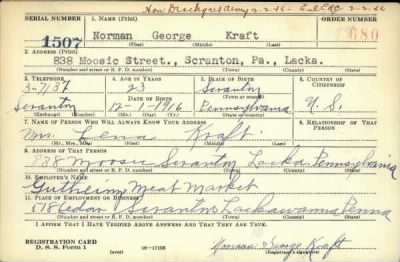 Hon Discharged Army 2-2-46 - 2-2-46
SERIAL NUMBER 1. NAME (Print) ORDER NUMBER
1507 Norman George Kraft 680
(First) (Middle) (Last)
2. ADDRESS (Print)
838 Moosic Street., Scranton, Pa., Lacka.
(Number and street or R. F. D. number) (Town) (County) (State)
3. TELEPHONE 4. AGE IN YEARS 5. PLACE OF BIRTH 6. COUNTRY OF CITIZENSHIP
3-7137 23 Scranton
(Town or county)
DATE OF BIRTH
Scranton 12-1-1916 Pennsylvania U. S.
(Exchange) (Number) (Mo.) (Day) (Yr.) (State or country)
7. NAME OF PERSON WHO WILL ALWAYS KNOW YOUR ADDRESS 8. RELATIONSHIP OF THAT PERSON
Mrs. Lena Kraft
(Mr., Mrs., Miss) (First) (Middle) (Last)
9. ADDRESS OF THAT PERSON
838 Moosic Scranton Lacka Pennsylvania
(Number and street or R. F. D. number) (Town) (County) (State)
10. EMPLOYER'S NAME
Gutheinz Meat Market
11. PLACE OF EMPLOYMENT OR BUSINESS
518 Cedar Scranton Lackawanna Penna
(Number and street or R. F. D. number) (Town) (County) (State)
I AFFIRM THAT I HAVE VERIFIED ABOVE ANSWERS AND THAT THEY ARE TRUE.
REGISTRATION CARD
D. S. S. Form 1 (over) 16-17105 Norman George Kraft
(Registrant's signature)